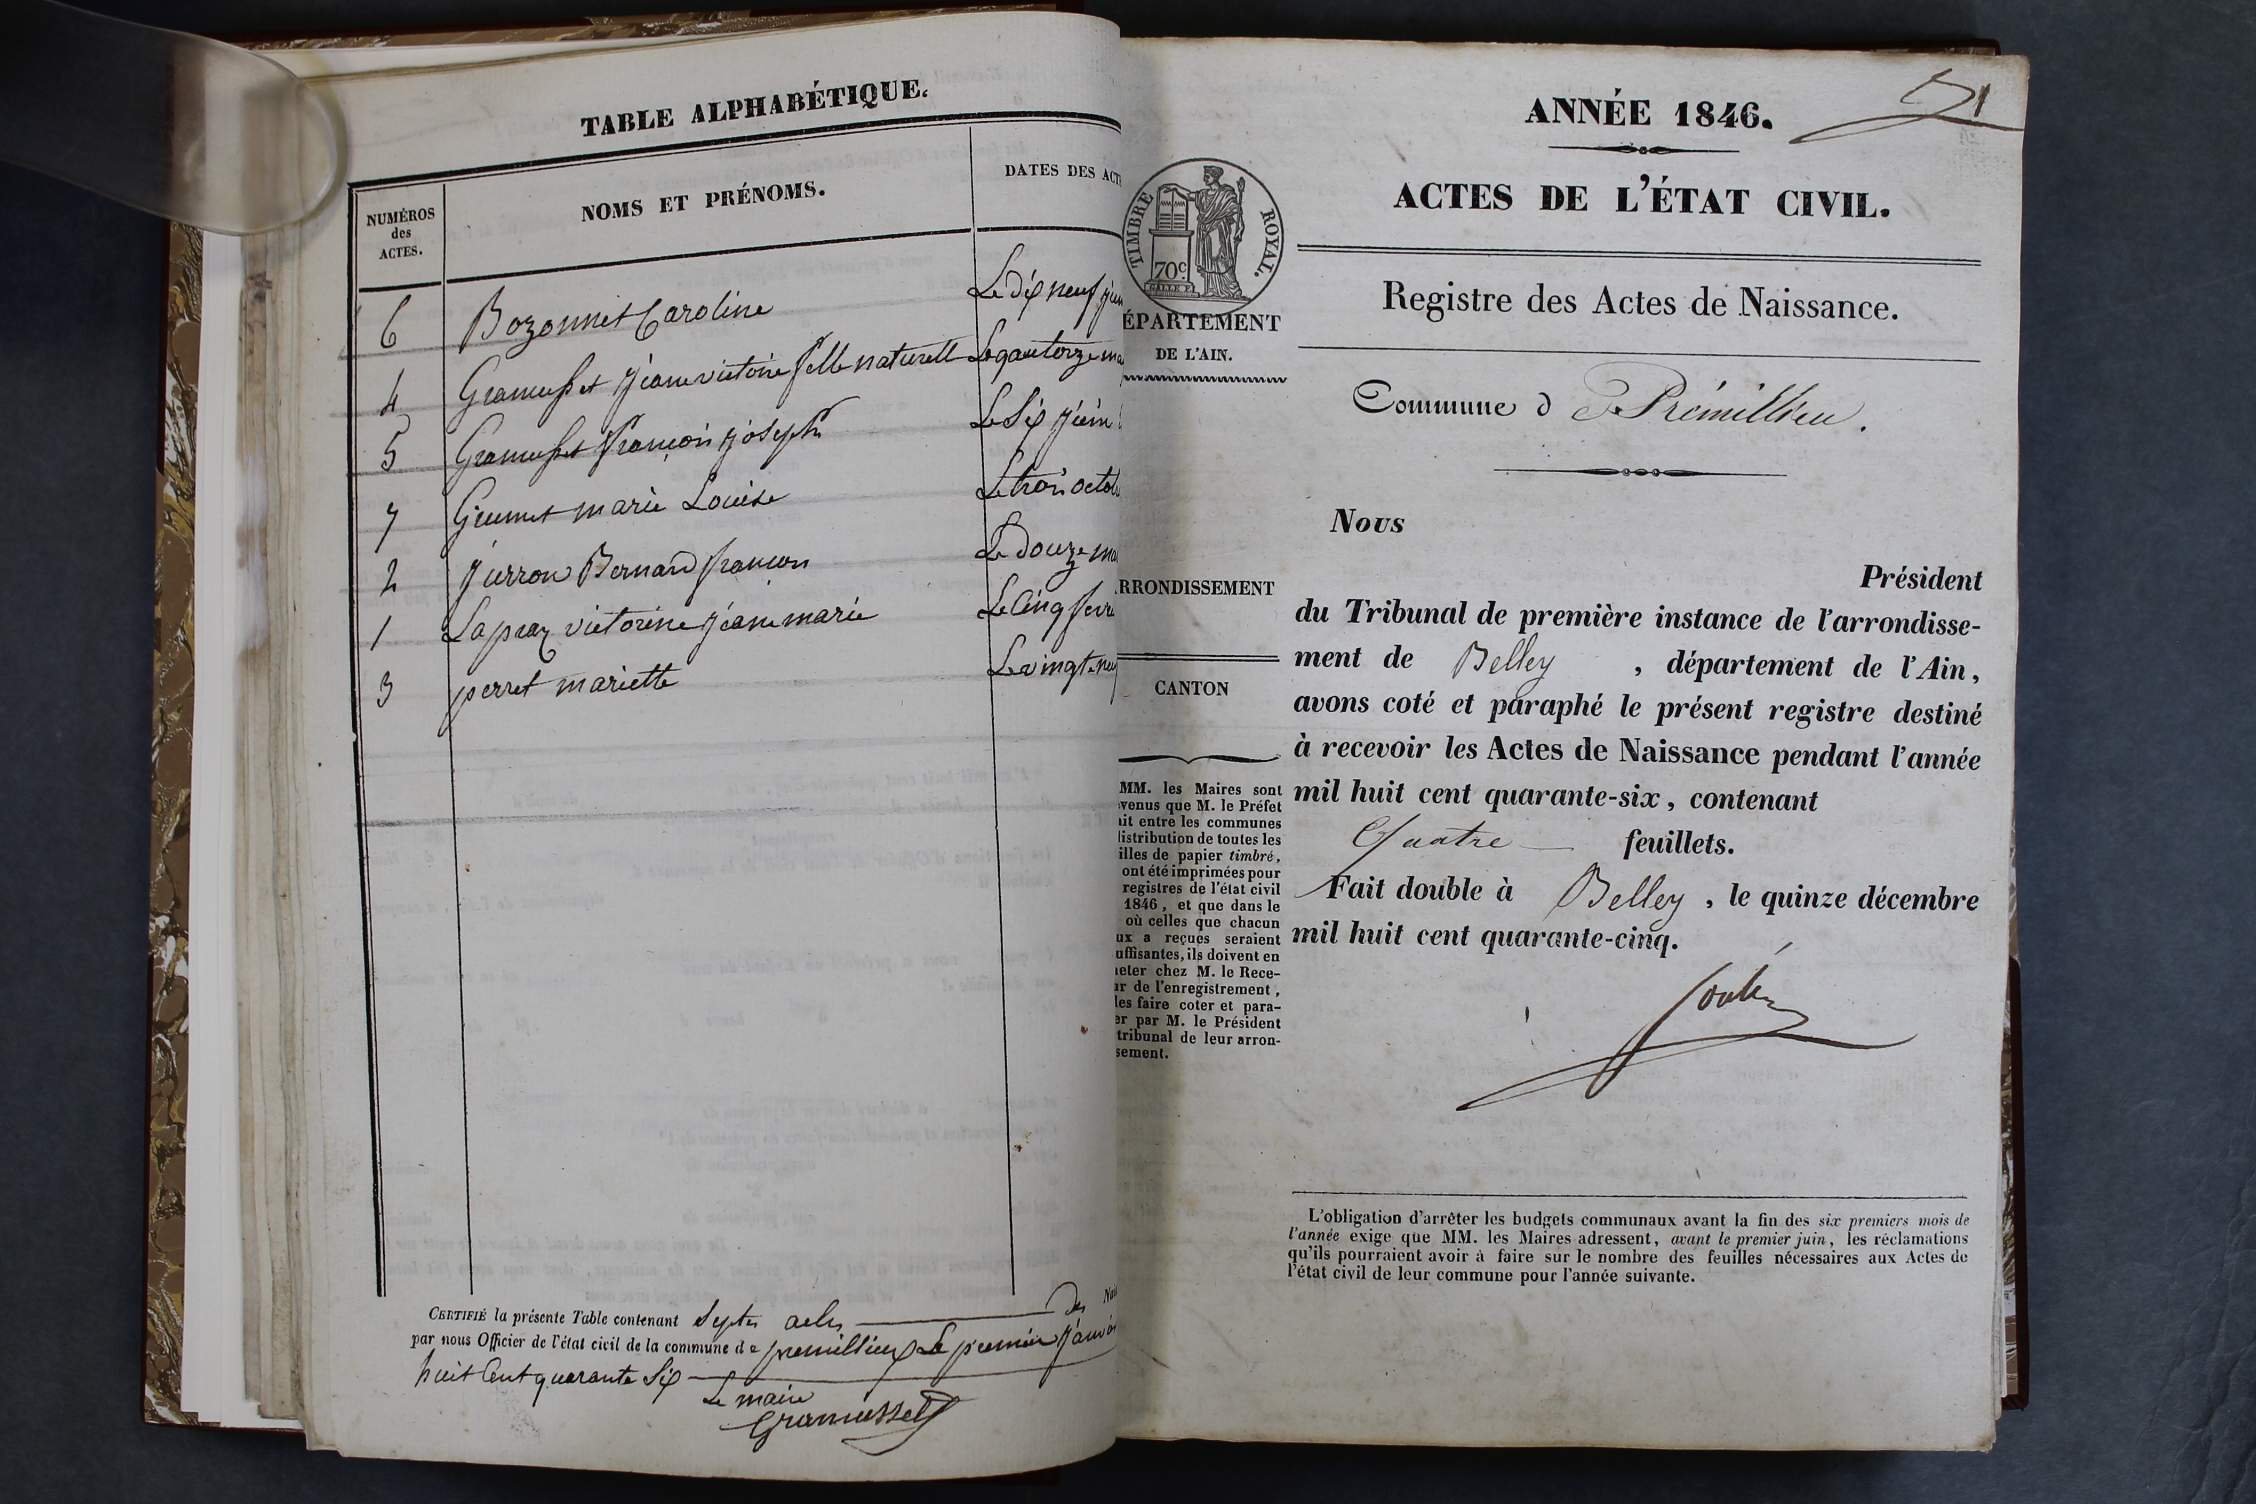 TABLE ALPHABÉTIQUE.
NUMÉROS
des
ACTES.
NOMS ET PRÉNOMS.
DATES DES ACT
6 Bozonnet Caroline Le dix neuf juin
4 Gramusset jeane victoire fille naturelle Le qautorze ma
5 Gramusset françois joseph Le Six juin
7 marie Louise Le trois octob
2 Bernard françois Le douze ma
1 Lapraz victorine jeane marie Le Cinq fevr
3 perret mariette Le vingt neu
CERTIFIÉ la présente Table contenant septes actes des Nai
par nous Officier de l'état civil de la commune de premillieux Le premier janvi
huit Cent quarante Six
Le maire
Gramusset
ANNÉE 1846.
1
ACTES DE L'ÉTAT CIVIL.
TIMBRE ROYAL.
70c.
ÉPARTEMENT
DE L'AIN.
Registre des Actes de Naissance.
Commune d e Prémillieu.
Nous
Président
RRONDISSEMENT
du Tribunal de première instance de l'arrondisse-
ment de Belley , département de l'Ain,
CANTON
avons coté et paraphé le présent registre destiné
à recevoir les Actes de Naissance pendant l'année
mil huit cent quarante-six, contenant
Quatre feuillets.
Fait double à Belley , le quinze décembre
mil huit cent quarante-cinq.
MM. les Maires sont
venus que M. le Préfet
ait entre les communes
distribution de toutes les
illes de papier timbré,
ont été imprimées pour
registres de l'état civil
1846, et que dans le
où celles que chacun
ux a reçues seraient
uffisantes, ils doivent en
heter chez M. le Rece-
ur de l'enregistrement,
les faire coter et para-
er par M. le Président
tribunal de leur arron-
sement.
L'obligation d'arrêter les budgets communaux avant la fin des six premiers mois de
l'année exige que MM. les Maires adressent, avant le premier juin, les réclamations
qu'ils pourraient avoir à faire sur le nombre des feuilles nécessaires aux Actes de
l'état civil de leur commune pour l'année suivante.